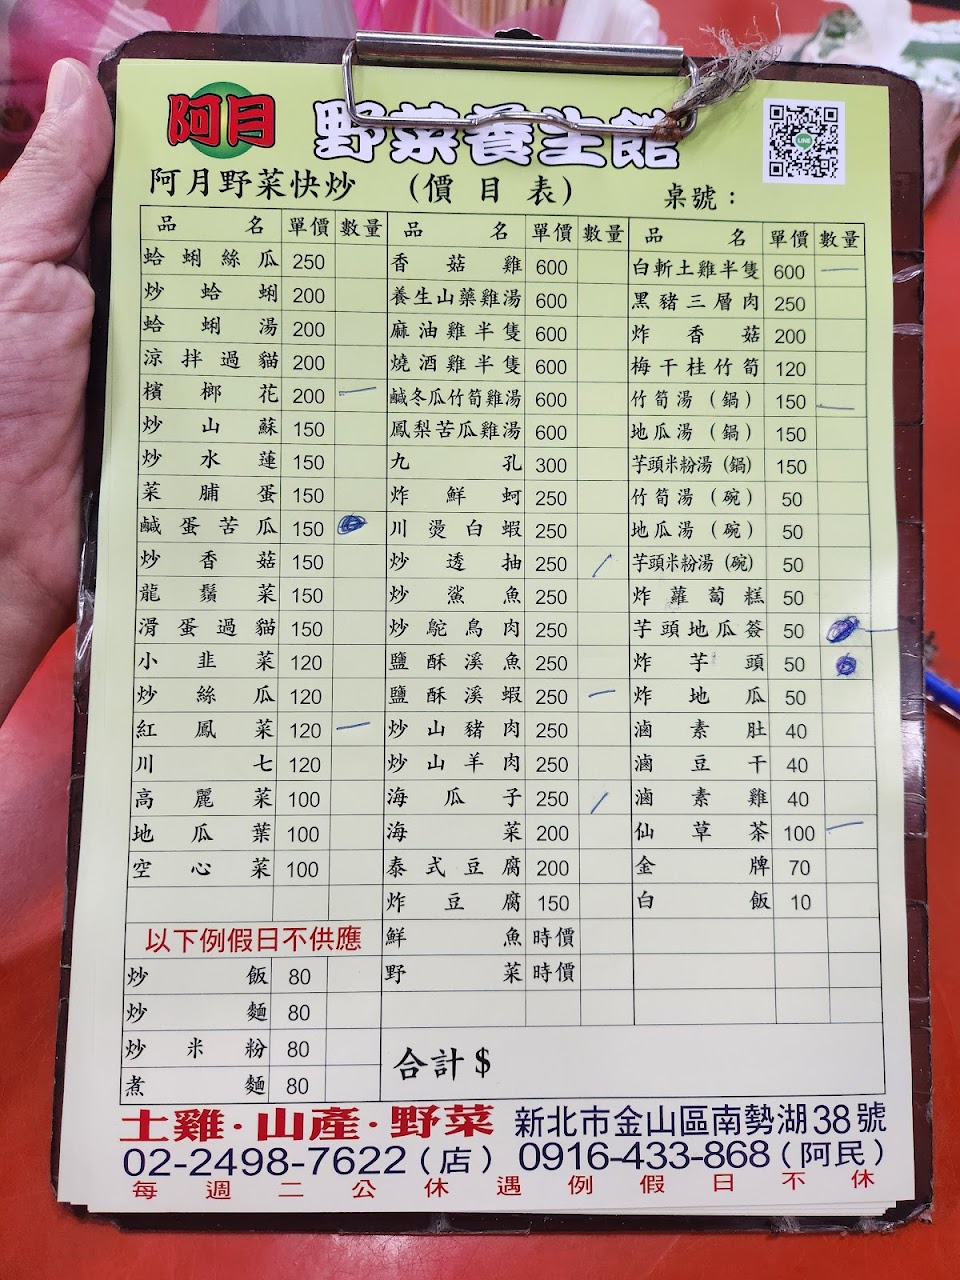 阿月 野菜養生館
LINE
阿月野菜快炒 (價目表) 桌號：
品名 單價 數量 品名 單價 數量 品名 單價 數量
蛤蜊絲瓜 250 香菇雞 600 白斬土雞半隻 600 一
炒蛤蜊 200 養生山藥雞湯 600 黑豬三層肉 250
蛤蜊湯 200 麻油雞半隻 600 炸香菇 200
涼拌過貓 200 燒酒雞半隻 600 梅干桂竹筍 120
檳榔花 200 一 鹹冬瓜竹筍雞湯 600 竹筍湯（鍋） 150 一
炒山蘇 150 鳳梨苦瓜雞湯 600 地瓜湯（鍋） 150
炒水蓮 150 九孔 300 芋頭米粉湯（鍋） 150
菜脯蛋 150 炸鮮蚵 250 竹筍湯（碗） 50
鹹蛋苦瓜 150 川燙白蝦 250 地瓜湯（碗） 50
炒香菇 150 炒透抽 250 芋頭米粉湯（碗） 50
龍鬚菜 150 炒鯊魚 250 炸蘿蔔糕 50
滑蛋過貓 150 炒鴕鳥肉 250 芋頭地瓜簽 50
小韭菜 120 鹽酥溪魚 250 炸芋頭 50
炒絲瓜 120 鹽酥溪蝦 250 一 炸地瓜 50
紅鳳菜 120 一 炒山豬肉 250 滷素肚 40
川七 120 炒山羊肉 250 滷豆干 40
高麗菜 100 海瓜子 250 滷素雞 40
地瓜葉 100 海菜 200 仙草茶 100 一
空心菜 100 泰式豆腐 200 金牌 70
炸豆腐 150 白飯 10
以下例假日不供應 鮮魚 時價
炒飯 80 野菜 時價
炒麵 80
炒米粉 80 合計$
煮麵 80
土雞·山產·野菜 新北市金山區南勢湖38號
02-2498-7622（店） 0916-433-868（阿民）
每週二公休遇例假日不休